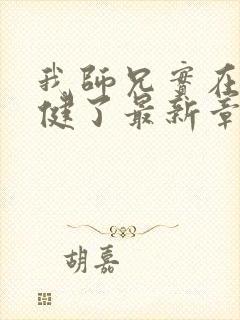 我師兄實在
健了最新章
胡嘉